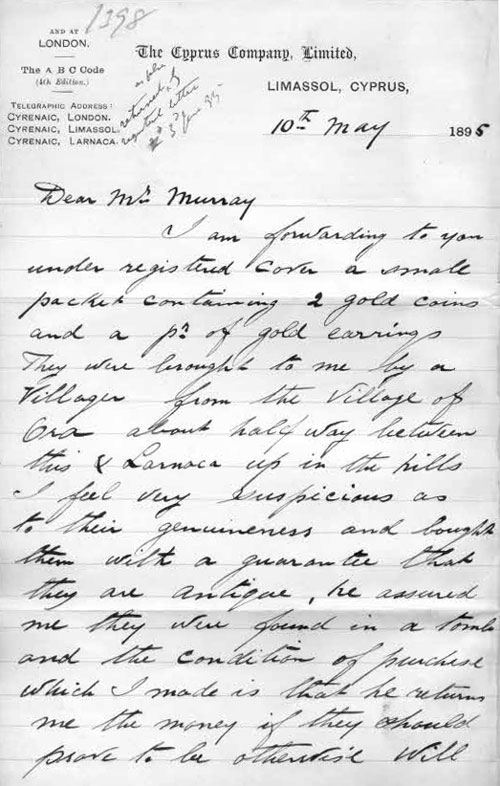 1398
AND AT
LONDON.
The A B C Code
(4th Edition.)
TELEGRAPHIC ADDRESS:
CYRENAIC, LONDON.
CYRENAIC, LIMASSOL.
CYRENAIC, LARNACA.
returned by
registered letter
The Cyprus Company, Limited,
LIMASSOL, CYPRUS,
10th May 1895
Dear Mr Murray
I am forwarding to you
under registered cover a small
packet containing 2 gold coins
and a pr of gold earrings
They were brought to me by a
Villager from the Village of
Ora about half way between
this & Larnaca up in the hills
I feel very suspicious as
to their genuineness and bought
them with a guarantee that
they are antique, he assured
me they were found in a tomb
and the condition of purchase
which I made is that he returns
me the money if they should
prove to be otherwise Will